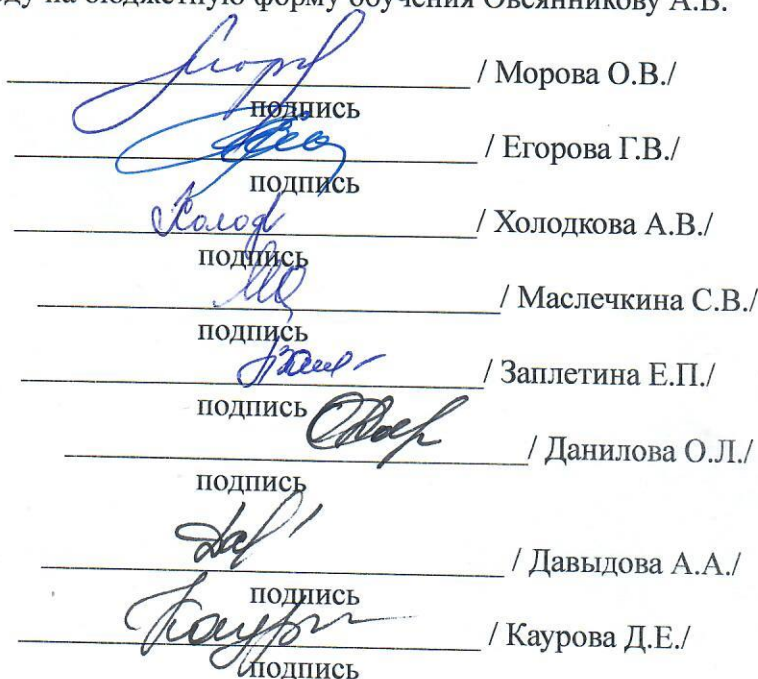 на бюджетную форму обучения Овсянникову А.В.
/ Морова О.В./
подпись
/ Егорова Г.В./
подпись
Холод / Холодкова А.В./
подпись
/ Маслечкина С.В./
подпись
/ Заплетина Е.П./
подпись
/ Данилова О.Л./
подпись
/ Давыдова А.А./
подпись
/ Каурова Д.Е./
подпись